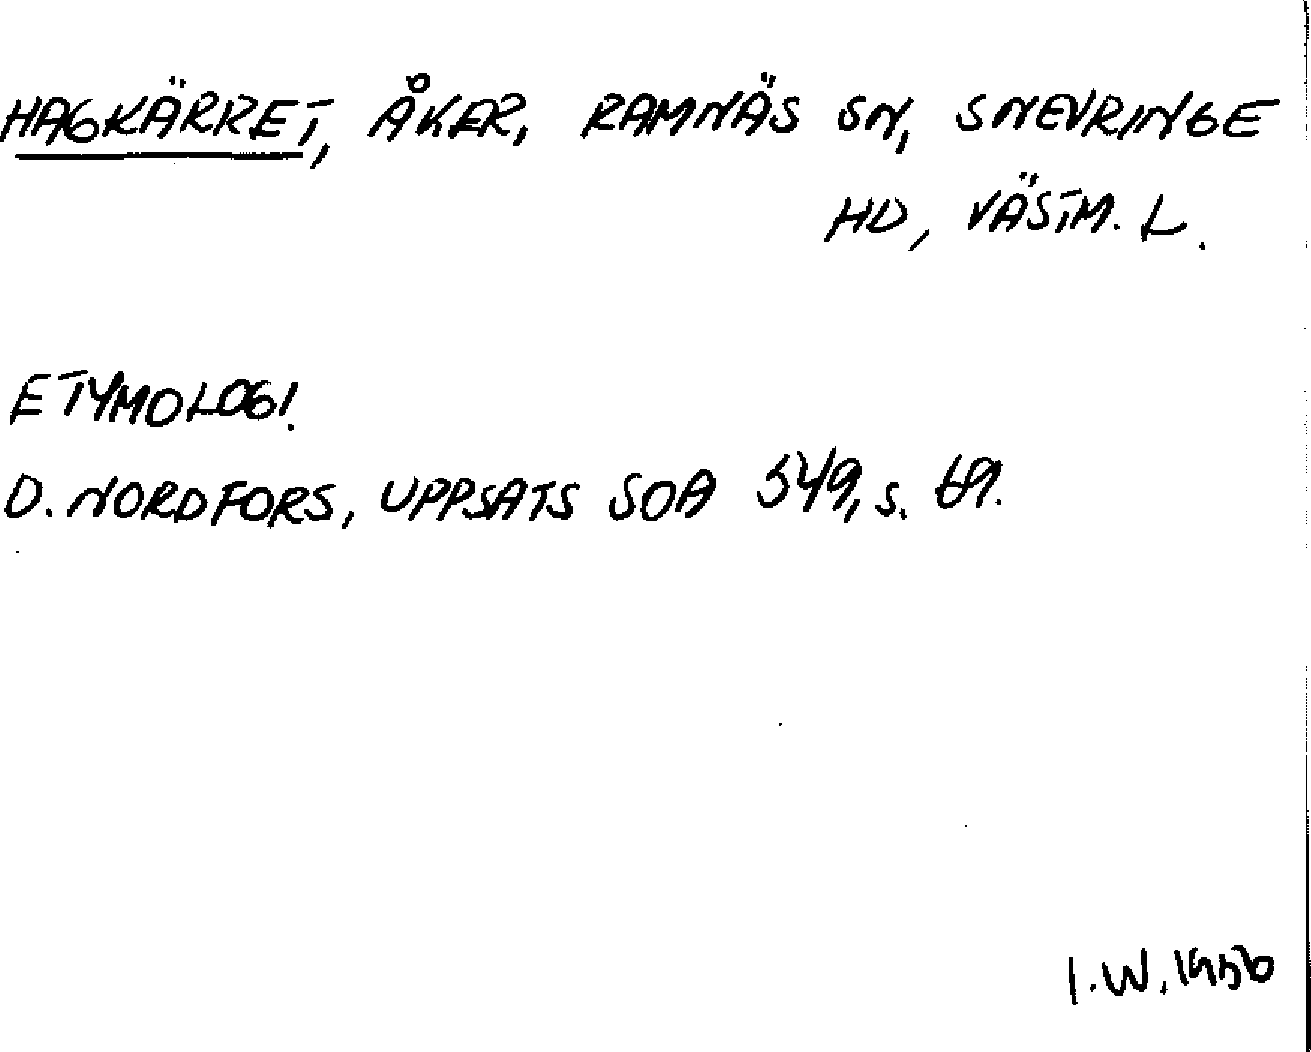 HAGKÄRRET, ÅKER, RAMNÄS SN, SNEVRINGE
HD, VÄSTM. L.
ETYMOLOGI.
D. NORDFORS, UPPSATS SOA 549, s. 69.
I.W. 1956